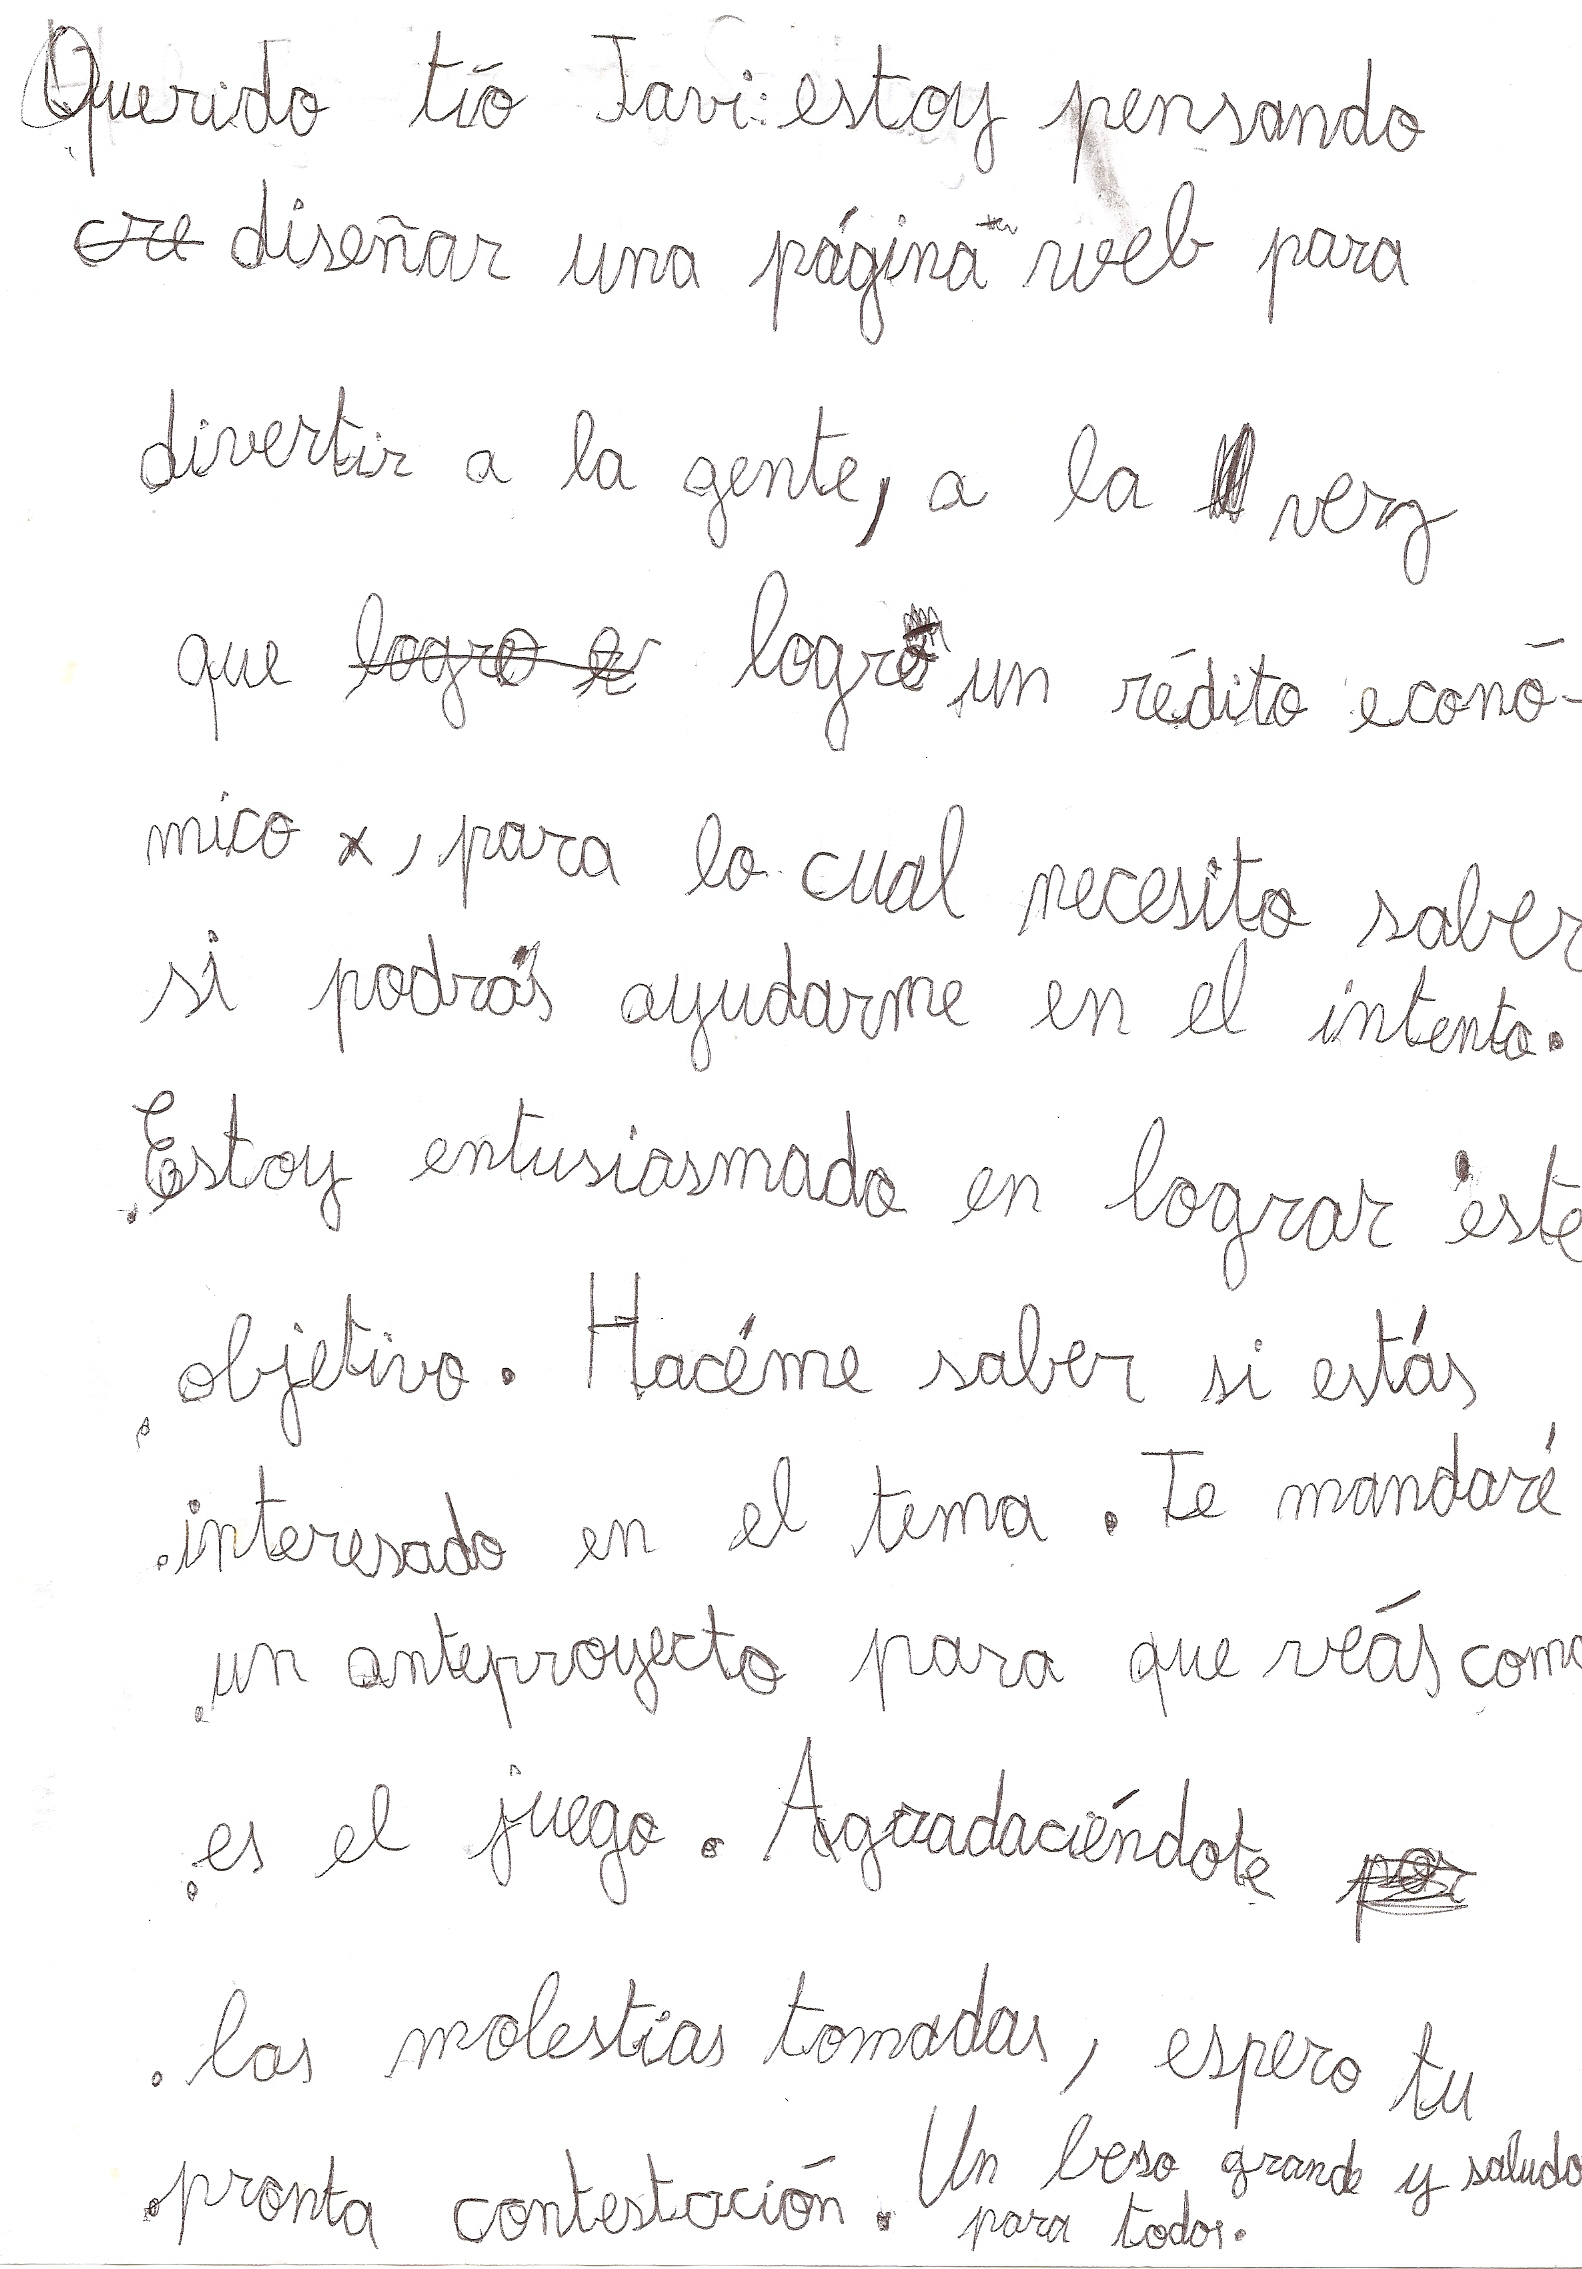 Querido tío Javi: estoy pensando
cre diseñar una página web para
divertir a la gente, a la vez
que logro logré un rédito econó-
mico x, para lo cual necesito saber
si podrás ayudarme en el intento.
Estoy entusiasmado en lograr éste
objetivo. Hacéme saber si estás
interesado en el tema. Te mandaré
un anteproyecto para que veás como
es el juego. Agradaciéndote por
las molestias tomadas, espero tu
pronta contestación. Un beso grande y saludo
para todos.